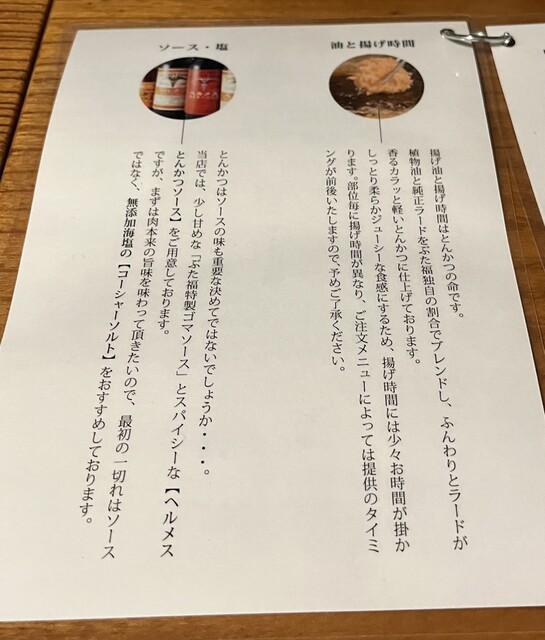 油と揚げ時間
揚げ油と揚げ時間はとんかつの命です。
植物油と純正ラードをぶた福独自の割合でブレンドし、ふんわりとラードが
香るカラッと軽いとんかつに仕上げております。
しっとり柔らかジューシーな食感にするため、揚げ時間には少々お時間が掛か
ります。部位毎に揚げ時間が異なり、ご注文メニューによっては提供のタイミ
ングが前後いたしますので、予めご了承ください。
ソース・塩
とんかつはソースの味も重要な決めてではないでしょうか・・・。
当店では、少し甘めな「ぶた福特製ゴマソース」とスパイシーな【ヘルメス
とんかつソース】をご用意しております。
ですが、まずは肉本来の旨味を味わって頂きたいので、最初の一切れはソース
ではなく、無添加海塩の【コーシャーソルト】をおすすめしております。